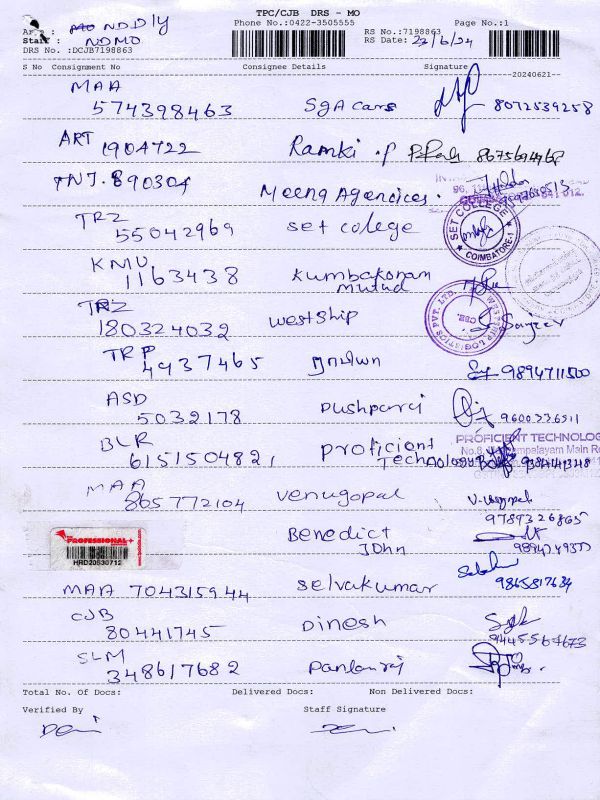 TPC/CJB DRS - MO
Phone No.:0422-3505555
Page No.:1
RS No.:7198863
RS Date: 22/6/24
NDDly
Staff : NDMO
DRS No. :DCJB7198863
S No Consignment No Consignee Details Signature
--20240621--
MAA
574398463 SgA cans 8072539258
ART 1904722 Ramki .P
TNJ. 890304 Meena Agencices.
TRZ
55042969 set college
SET COLLEGE
COIMBATORE-1
KMU
1163438 Kumbakonam
TRZ
180324032 westship Sanjeev
TRP
4937465 9894711500
ASD
5032178 Pushparaj
BLR
615150482, Proficient
Technology
PROFICIENT TECHNOLOG
MAA
865772104 Venugopal
9789326865
Benedict
John
THE PROFESSIONAL
HRD20830712
MAA 704315944 Selvakumar 9865817634
CJB
80441745 Dinesh
SLM
348617682
Total No. Of Docs: Delivered Docs: Non Delivered Docs:
Verified By Staff Signature